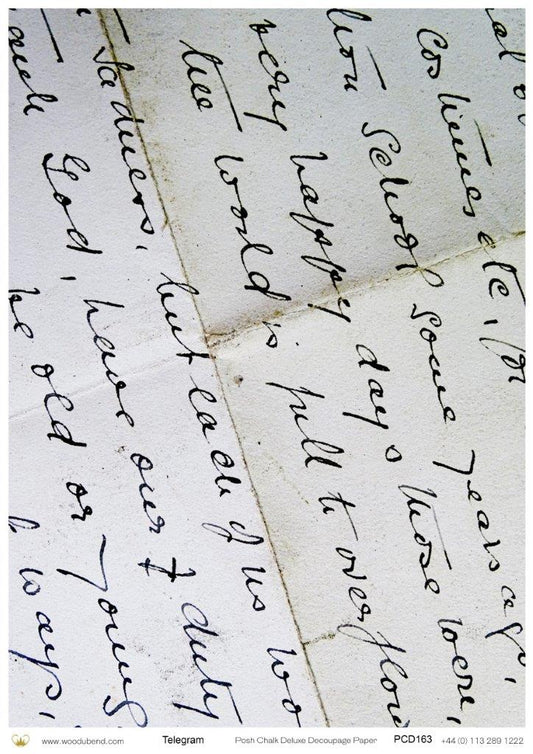 Costumes etc, for
School some years ago,
very happy days those were,
the world is full to overflow
Sadness, but each of us wo
God, have our + duty
be old or young
ways,
www.woodubend.com Telegram Posh Chalk Deluxe Decoupage Paper PCD163 +44 (0) 113 289 1222